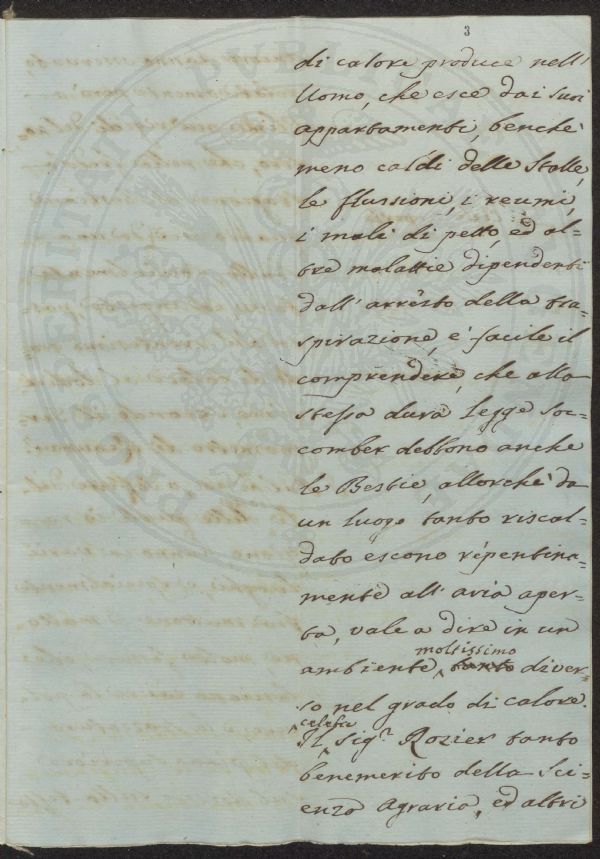 3
di calore produce nell'
Uomo, che esce dai suoi
appartamenti, benchè
meno caldi delle Stalle,
le flussioni, i reumi,
i mali di petto, ed al=
tre malattie dipendenti
dall' arresto della tra=
spirazione, è facile il
comprendere, che alla
stessa dura legge soc=
comber debbono anche
le Bestie, allorchè da
un luogo tanto riscal=
dato escono repentina=
mente all' aria aper=
ta, vale a dire in un
moltissimo
ambiente tanto diver=
so nel grado di calore.
celebre
Il Sig.r Rozier tanto
benemerito della Sci=
enza Agraria, ed altri